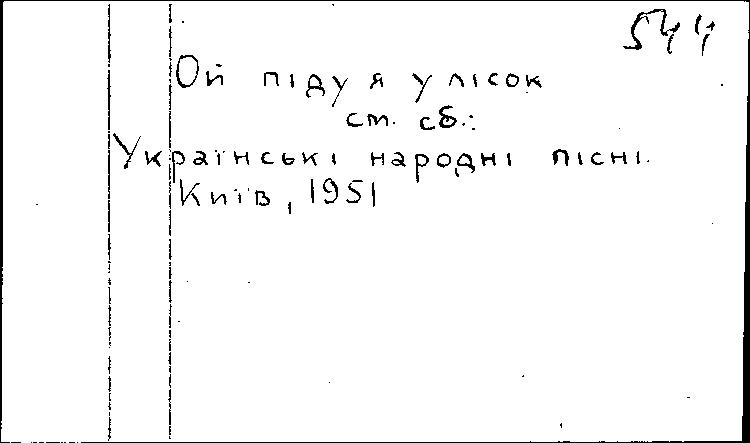 544
Ой піду я у лісок
см. сб.:
Українські народні пісні.
Київ, 1951